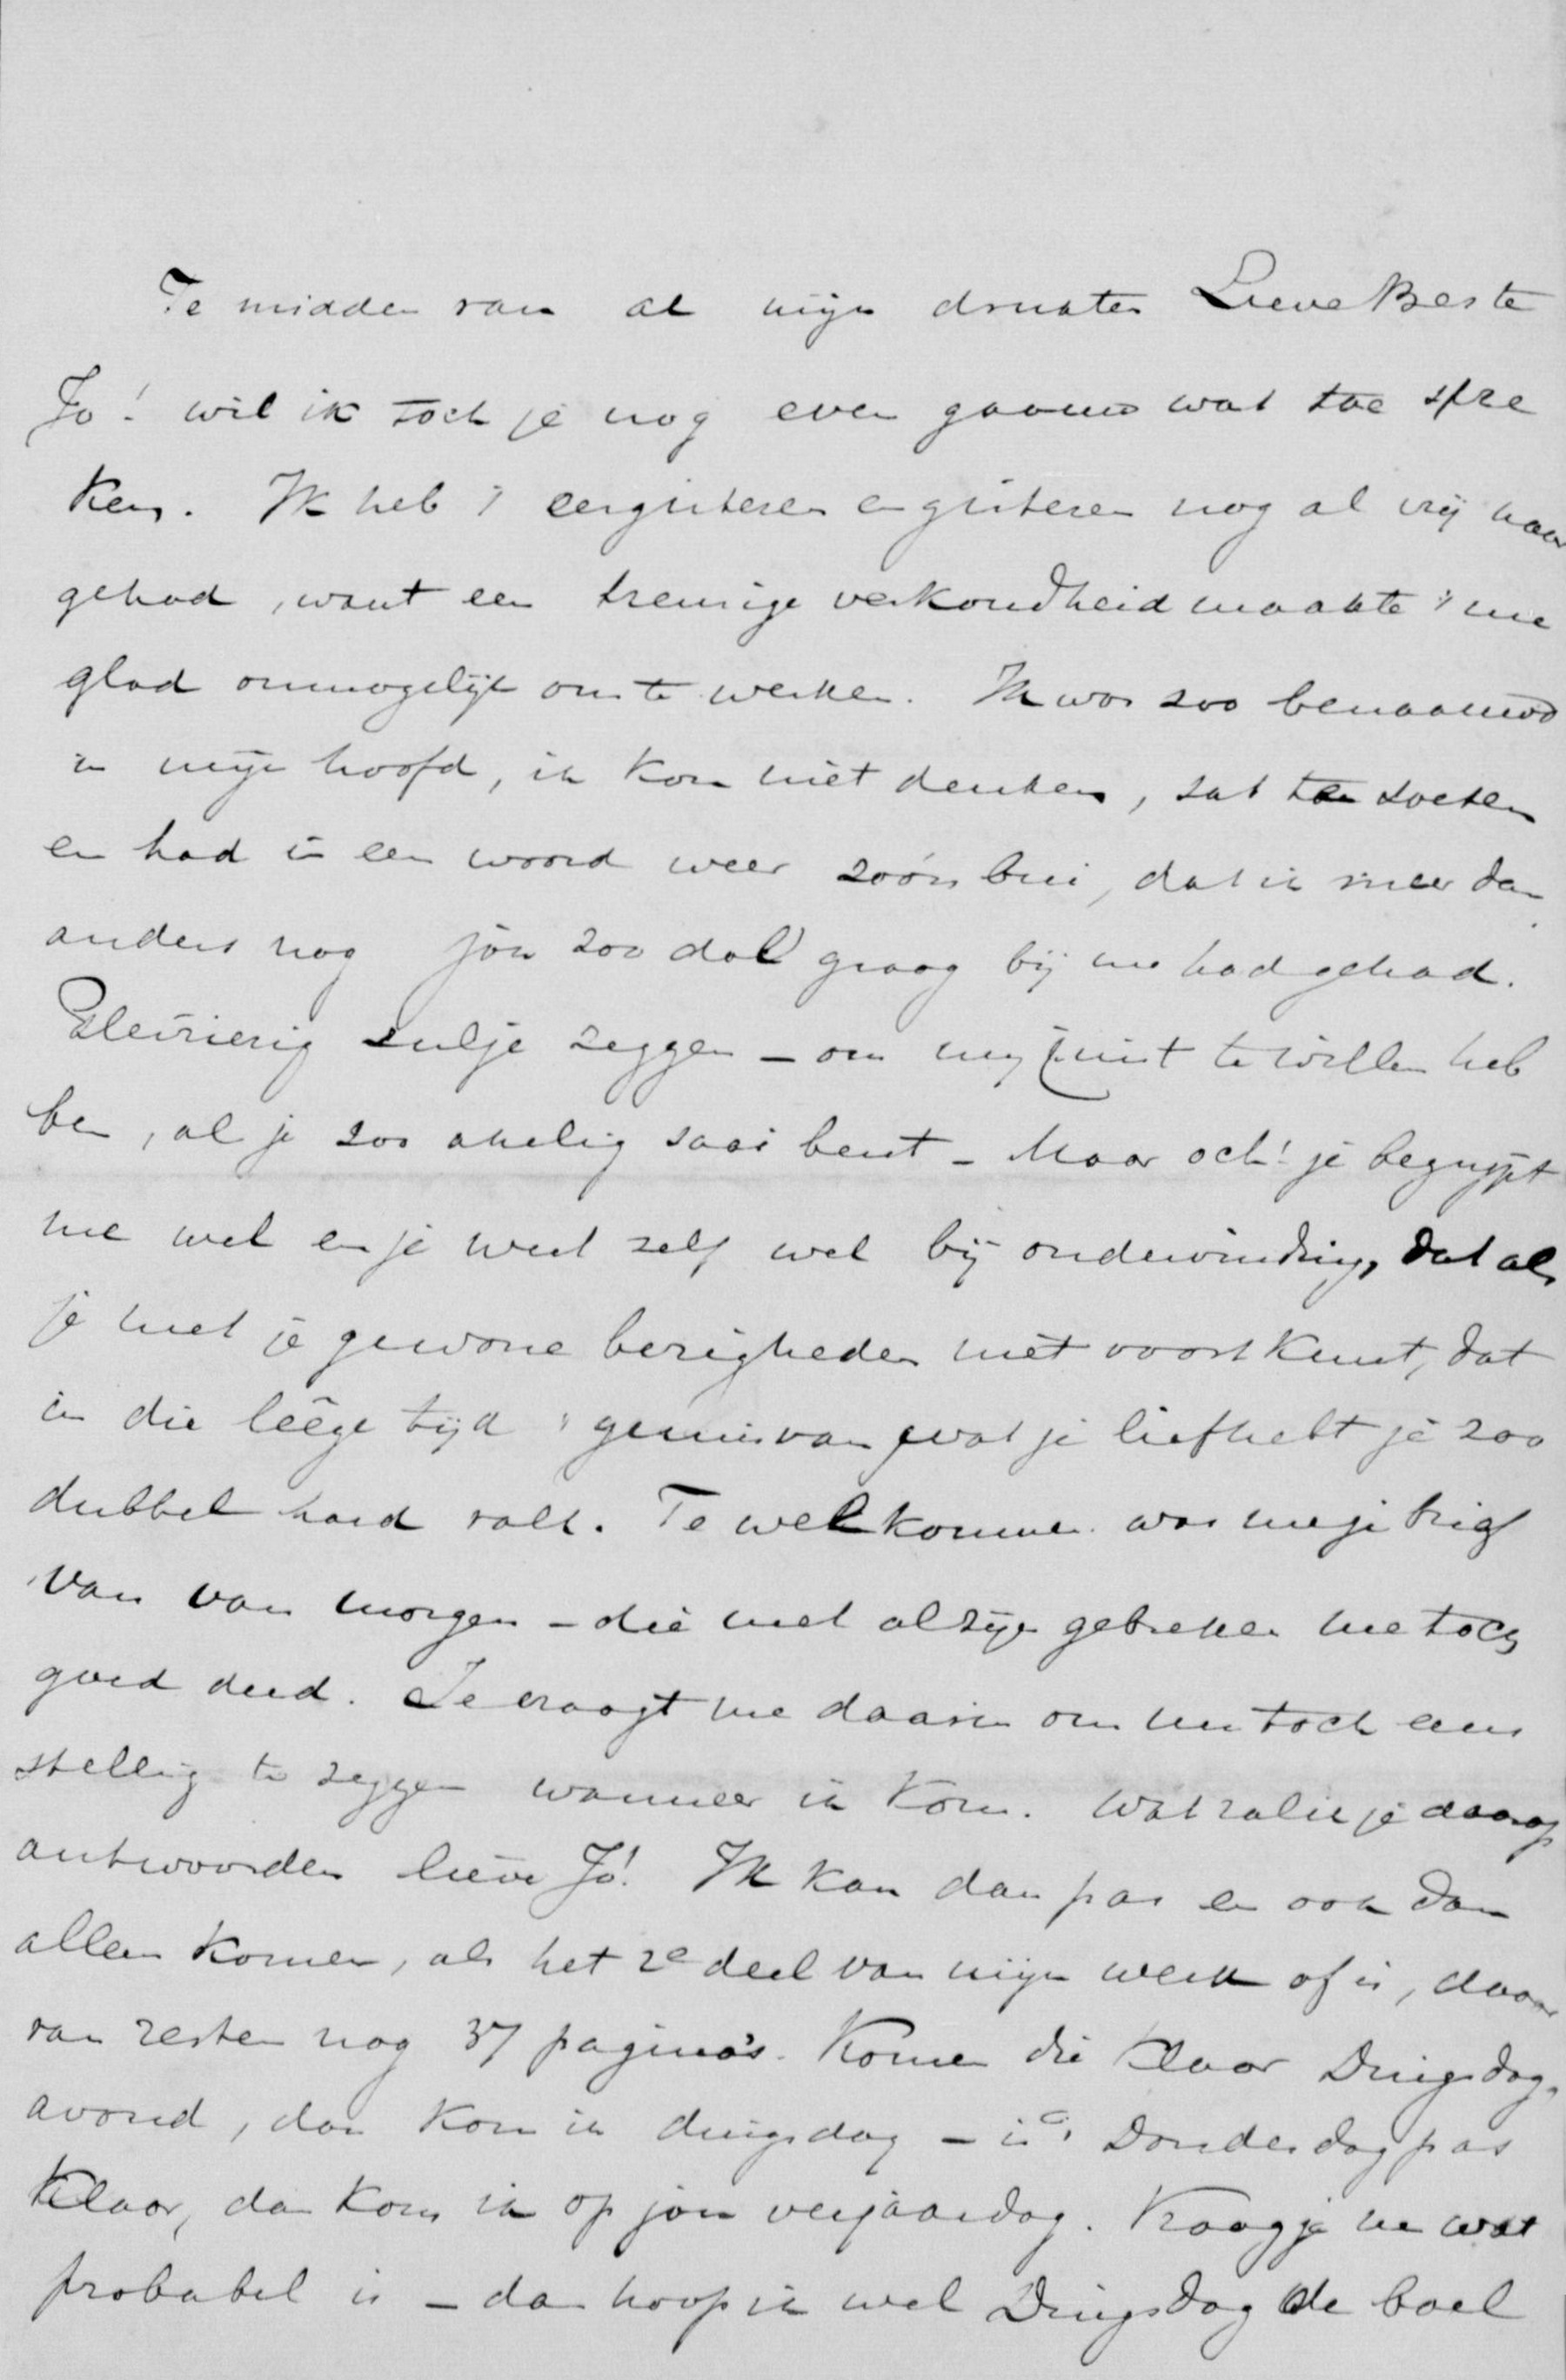 Te midden van al mijn drukten Lieve Beste
Jo! wil ik toch je nog even gaauw wat toe spre
ken. Ik heb 't eergisteren en gisteren nog al vrij naar
gehad, want een treurige verkoudheid maakte 't me
glad onmogelijk om te werken. Ik was zoo benaauwd
in mijn hoofd, ik kon niet denken, zat te soezen
en had in een woord weer zóó'n bui, dat ik meer dan
anders nog jou zoo dol graag bij me had gehad.
Pleizierig zul je zeggen – om mij juist te willen heb
ben, als je zoo akelig saai bent – Maar och! je begrijpt
me wel en je weet zelf wel bij ondervinding, dat als
je met je gewone bezigheden niet voort kunt, dat
in die leêge tijd 't gemis van wat je liefhebt je zoo
dubbel hard valt. Te welkommer was me je brief
van van morgen – die met al zijn gebreken me toch
goed deed. Je vraagt me daarin om nu toch eens
stellig te zeggen wanneer ik kom. Wat zal ik je daarop
antwoorden lieve Jo! Ik kan dan pas en ook dan
alleen komen, als het 2e deel van mijn werk af is, daar
van resten nog 37 pagina's. Komen die klaar Dingsdag
avond, dan kom ik dingsdag – is 't Donderdag pas
klaar, dan kom ik op jou verjaardag. Vraag je me wat
probabel is – dan hoop ik wel Dingsdag de boel